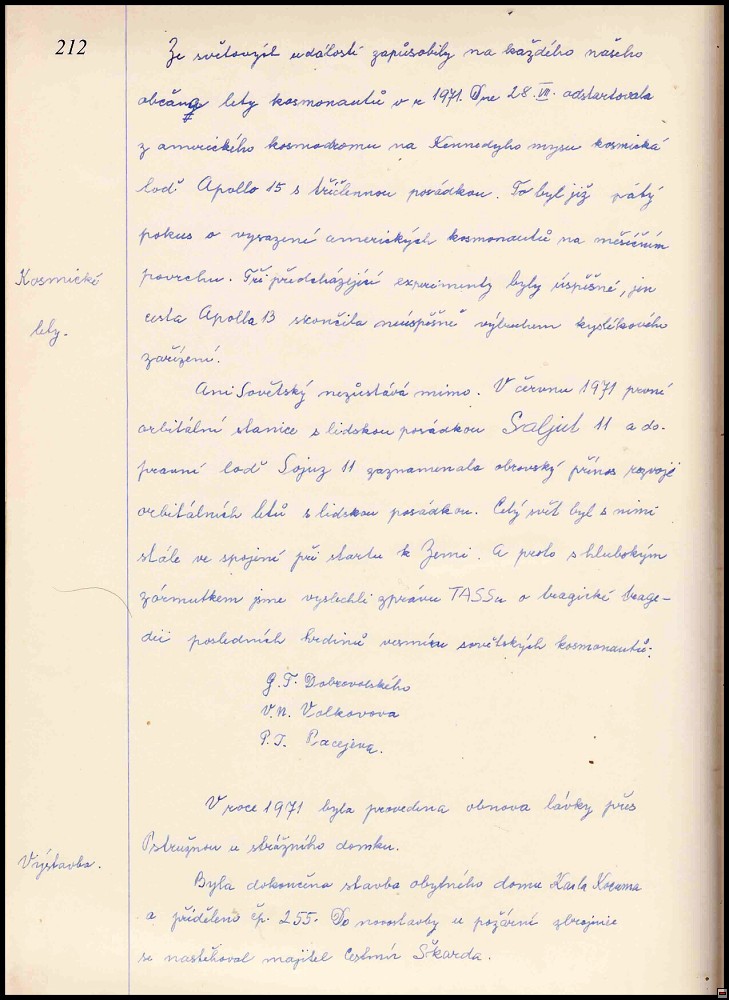 212
Ze světových událostí zapůsobily na každého našeho
občana lety kosmonautů v r 1971. Dne 28.VII. odstartovala
z amerického kosmodromu na Kennedyho mysu kosmická
loď Apollo 15 s tříčlennou posádkou. To byl již pátý
pokus o vysazení amerických kosmonautů na měsíčním
Kosmické
povrchu. Tři předcházející experimenty byly úspěšné, jen
lety.
cesta Apolla 13 skončila neúspěšně výbuchem kyslíkového
zařízení.
Ani Sovětský nezůstává mimo. V červnu 1971 první
orbitální stanice s lidskou posádkou Saljut 11 a do-
pravní loď Sojuz 11 zaznamenala obrovský přínos rozvoji
orbitálních letů s lidskou posádkou. Celý svět byl s nimi
stále ve spojení při startu k Zemi. A proto s hlubokým
zármutkem jsme vyslechli zprávu TASSu o tragické trage-
dii posledních hrdinů vesmíru sovětských kosmonautů:
G.T. Dobrovolského
V.N. Volkovova
P.I. Pacejeva.
V roce 1971 byla provedena obnova lávky přes
Pstružnou u strážního domku.
Výstavba.
Byla dokončena stavba obytného domu Karla
a přiděleno čp. 255. Do novostavby u požární zbrojnice
se nastěhoval majitel Čestmír Škarda.